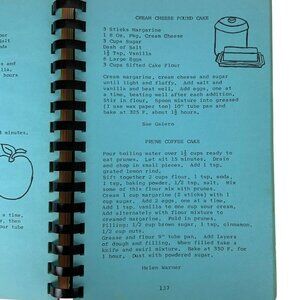 and
Salt
ds

in a
. Pour
hours

minutes.

a time,
then
our tube
CREAM CHEESE POUND CAKE
3 Sticks Margarine
1 8 Oz. Pkg. Cream Cheese
3 Cups Sugar
Dash of Salt
1½ Tsp. Vanilla
6 Large Eggs
3 Cups Sifted Cake Flour
Cream margarine, cream cheese and sugar
until light and fluffy. Add salt and
vanilla and beat well. Add eggs, one at
a time, beating well after each addition.
Stir in flour. Spoon mixture into greased
(I use wax paper too) 10" tube pan and
bake at 325 F. about 1½ hours.
Sue Galero
PRUNE COFFEE CAKE
Pour boiling water over 1½ cups ready to
eat prunes. Let sit 15 minutes. Drain
and chop in small pieces. Add 1 tsp.
grated lemon rind.
Sift together 2 cups flour, 1 tsp. soda,
1 tsp. baking powder, 1/2 tsp. salt. Mix
of this flour mix with prunes.
Cream 1 cup margarine (2 sticks) with 1
cup sugar. Add 2 eggs, one at a time.
Add 1 tsp. vanilla to one cup sour cream.
Add alternately with flour mixture to
creamed margarine. Fold in prunes.
Filling: 1/2 cup brown sugar, 1 tsp. cinnamon,
1/2 cup nuts.
Grease and flour 9" tube pan. Add layers
of dough and filling. When filled take a
knife and swirl mixture. Bake at 350 F. for
1 hour. Dust with powdered sugar.
Helen Warner
137